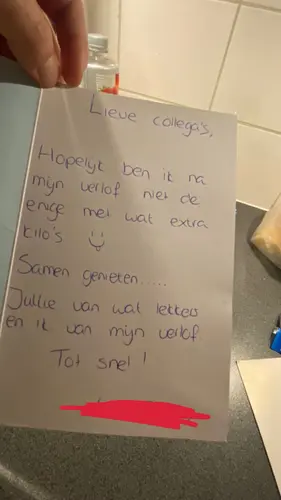 Lieve collega's,
Hopelijk ben ik na
mijn verlof niet de
enige met wat extra
kilo's
Samen genieten.....
Jullie van wat lekkers
en ik van mijn verlof
Tot snel!